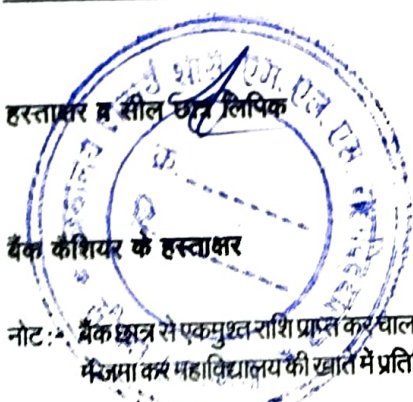 हस्ताक्षर व सील छात्र लिपिक
बैंक कैशियर के हस्ताक्षर
नोट :- बैंक छात्र से एकमुश्त राशि प्राप्त कर चाल
में जमा कर महाविद्यालय की खाते में प्रति
एम. एल. एस.
क्र.